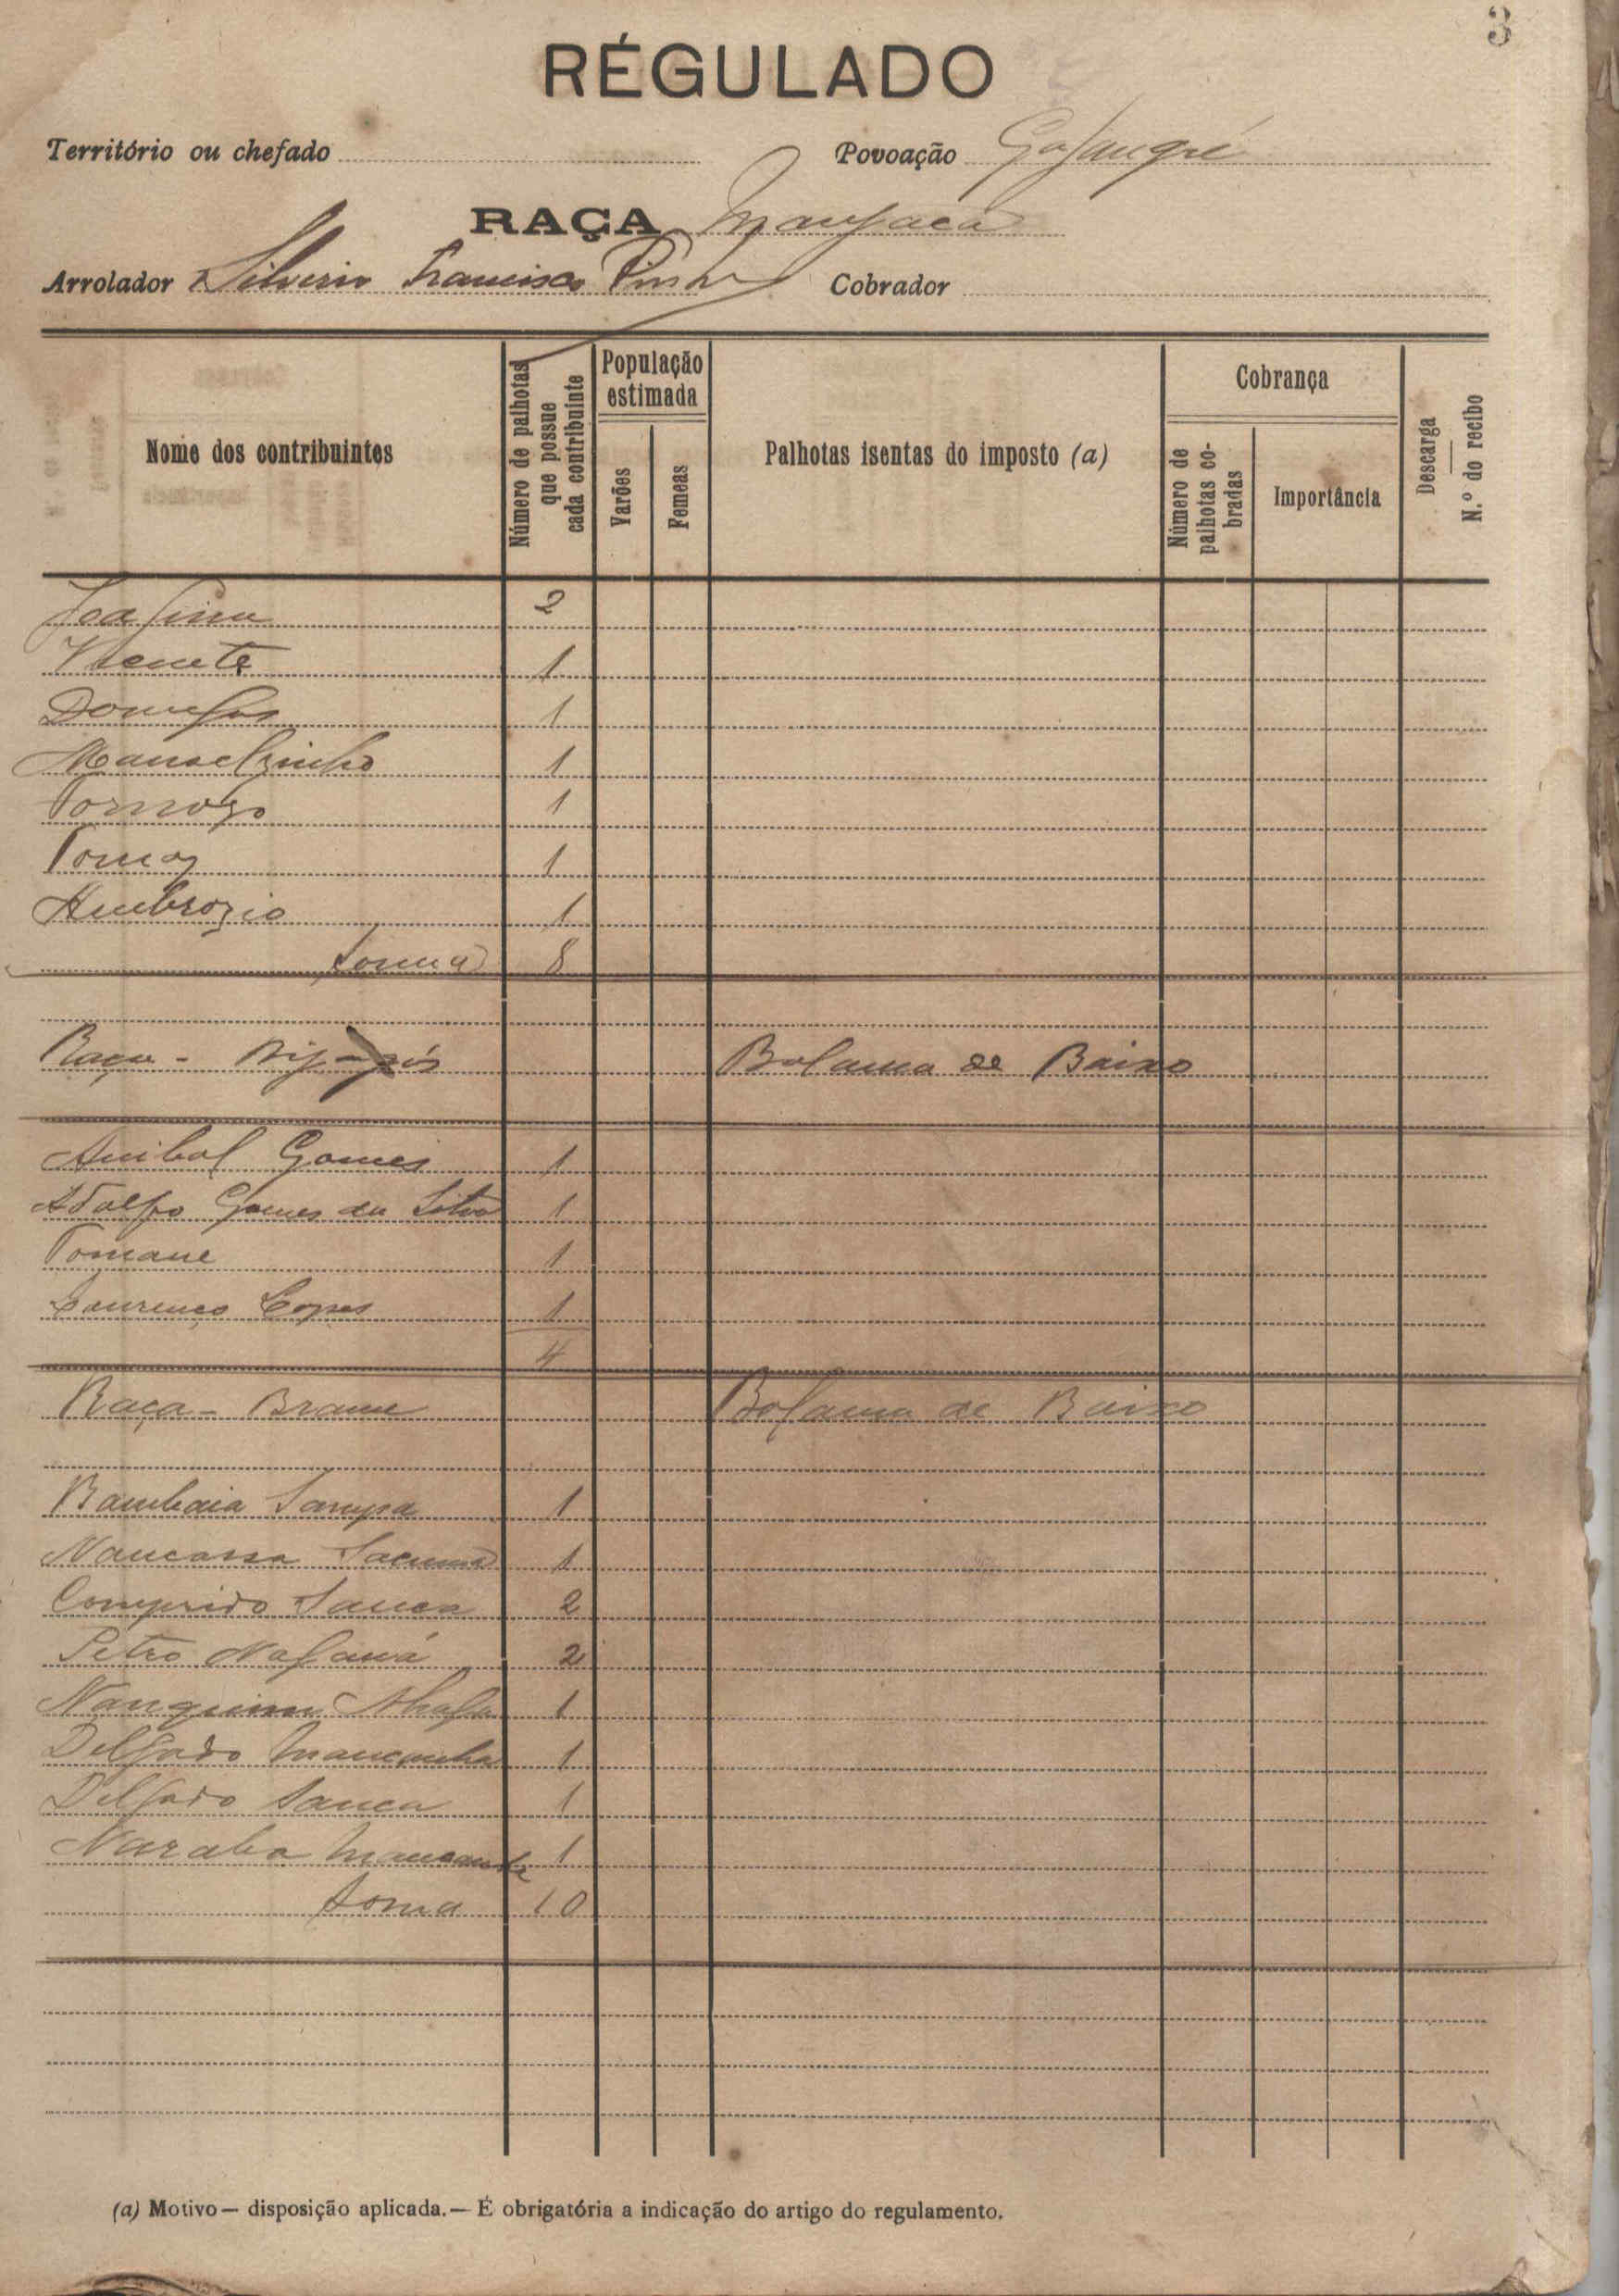 3
RÉGULADO
Território ou chefado Povoação
RAÇA Manjaca
Arrolador Silverio Francisco Pinto Cobrador
Nome dos contribuintes
Número de palhotas que possue cada contribuinte
População estimada
Varões
Femeas
Palhotas isentas do imposto (a)
Cobrança
Número de palhotas cobradas
Importância
Descarga
N.º do recibo
2
Vicente 1
Domingos 1
Manoelzinho 1
1
Tomaz 1
Ambrozio 1
Soma 8
Raça - Bijagós Bolama de Baixo
Anibal Gomes 1
Adolfo Gomes da Silva 1
Tomane 1
Lourenço Lopes 1
4
Raça - Brame Bolama de Baixo
Bambaia Sampa 1
Nancassa 1
Comprido Sanca 2
Petro 2
Nanquim 1
Delgado Mancanha 1
Delgado Sanca 1
Naraba Mancanha 1
Soma 10
(a) Motivo — disposição aplicada. — É obrigatória a indicação do artigo do regulamento.